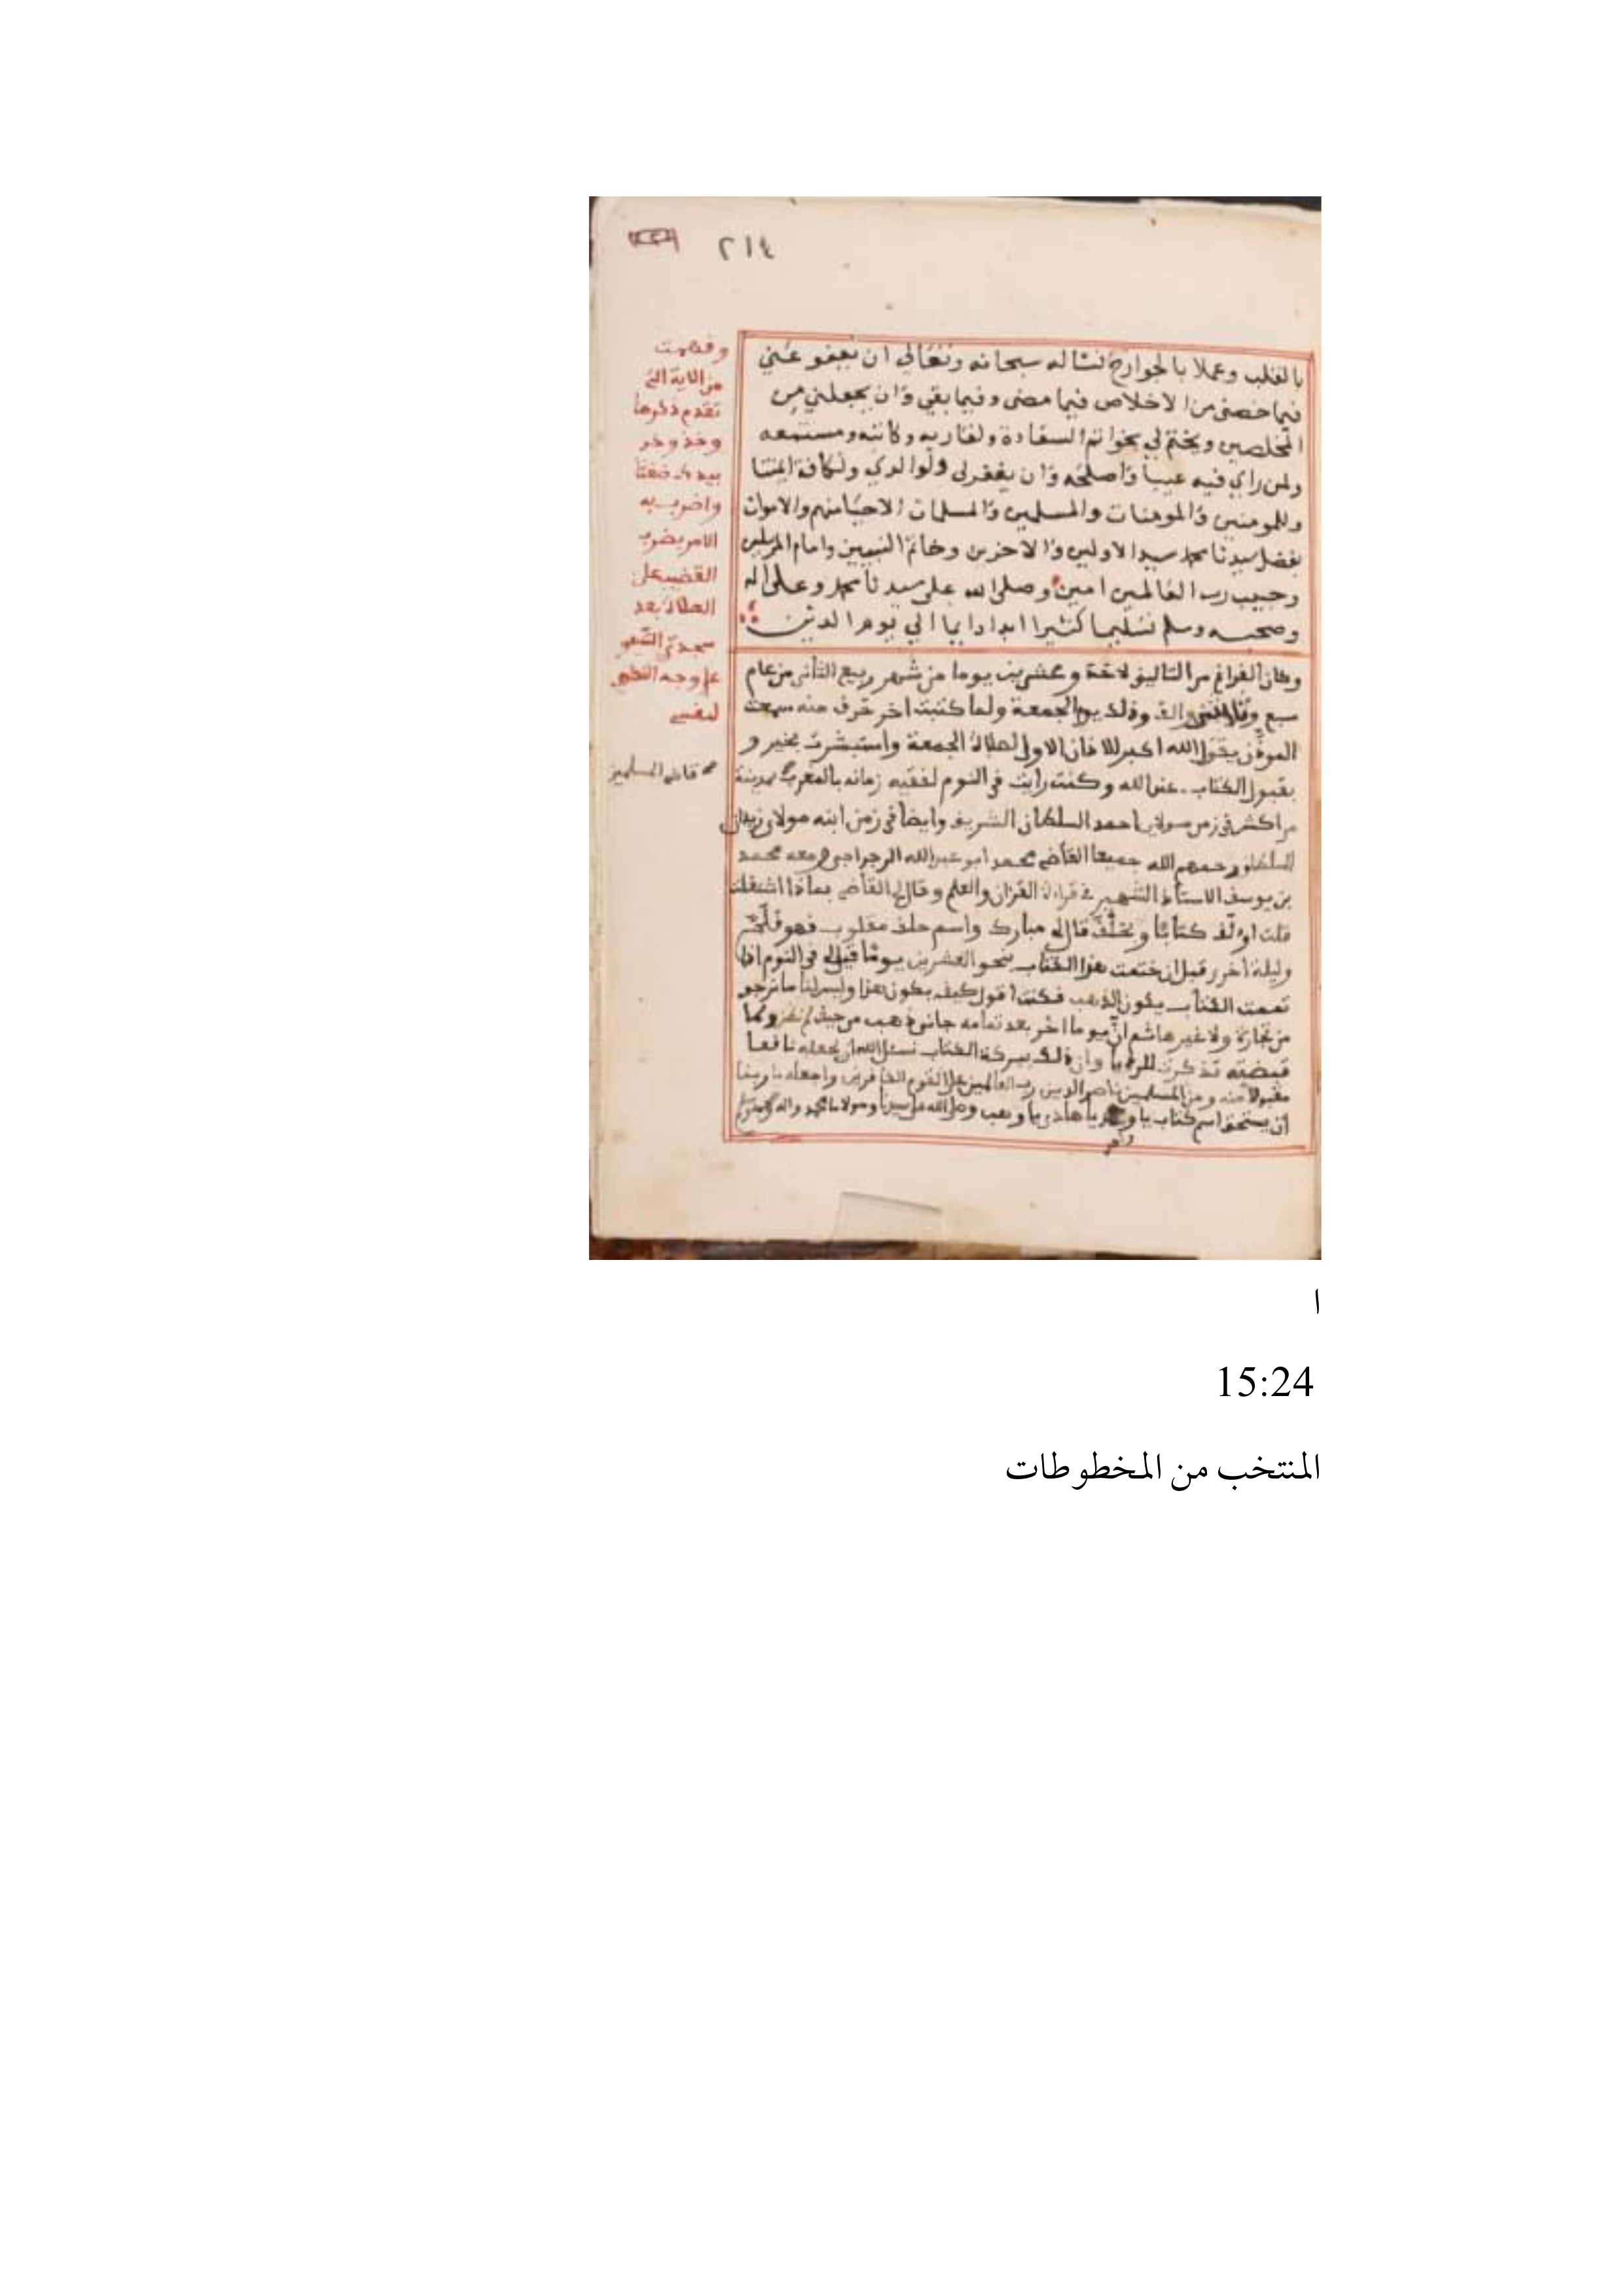 ٢١٤
بالقلب وعملا بالجوارح نساله سبحانه وتعالى ان يعفو عني
فيما خصني من الاخلاص فيما مضى وفيما بقي وان يجعلني من
المخلصين ويختم لي بخواتم السعادة ولقاريه وكاتبه ومستمعه
ولمن راي فيه عيبا واصلحه وان يغفر لي ولوالدي ولكافة
وللمومنين والمومنات والمسلمين والمسلمات الاحيا منهم والاموات
بفضل سيدنا محمد سيد الاولين والاخرين وخاتم النبيين وامام المرسلين
وحبيب رب العالمين امين وصلى الله على سيدنا محمد وعلى اله
وصحبه وسلم تسليما كثيرا ابدا دايما الي يوم الدين
وكان الفراغ من التاليف لاحد وعشرين يوما من شهر ربيع الثاني من عام
سبع والف وذلك يوم الجمعة ولما كتبت اخر حرف منه سمعت
الموذن يقول الله اكبر للاذان الاول لصلاة الجمعة واستبشرت بخير و
بقبول الكتاب عند الله وكنت رايت في النوم لفقيه زمانه بالمغرب بمدينة
مراكش في زمن مولاي احمد السلطان الشريف وايضا في زمن ابنه مولاي زيدان
السلطان رحمهم الله جميعا القاضي محمد ابو عبد الله الرجراجي ومعه محمد
بن يوسف الاستاذ الشهير في قراءة القران والعلم وقال لي القاضي بماذا اشتغلت
قلت اولف كتابا قال لي مبارك واسم خلف مقلوب فهو
وليلة اخرى قبل ان ختمت هذا الكتاب بنحو العشرين يوما قيل لي في النوم اذا
تممت الكتاب يكون الذهب فكنت اقول كيف يكون هذا وليس لنا ما نرجو
من تجارة ولا غيرها ثم ان يوما اخر بعد تمامه جاني ذهب من حيث لم ولما
قبضته تذكرت للرويا وان ذلك ببركة الكتاب نسئل الله ان يجعله نافعا
مقبولا منه ومن المسلمين ناصر الدين رب العالمين على القوم الكافرين واجعله يا ربنا
ان يستحق اسم كتاب يا يا هادي يا وهب وصلى الله على سيدنا ومولانا محمد واله
وفهمت
من الاية التي
تقدم ذكرها
وخذ وخر
بيدك ضغثا
واضرب به
الامر بضرب
القضيب على
الصلاة بعد
على وجه
لنفسي
قاضي المسلمين
ا
15:24
المنتخب من المخطوطات